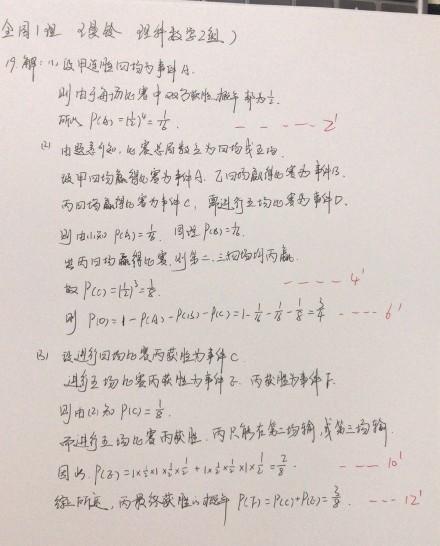 全国1理 理科数学2组)
19.解: (1) 设甲连胜四场为事件A.
则由于每场比赛中双方获胜概率都为½.
所以 P(A)=(½)⁴=1/16. - - - - - 2'
(2) 由题意知, 比赛总局数立为四场或五场.
设甲四场赢得比赛为事件A. 乙四场赢得比赛为事件B.
丙四场赢得比赛为事件C, 需进行五场比赛为事件D.
则由(1)知 P(A)=1/16. 同理 P(B)=1/16.
若丙四场赢得比赛, 则第二、三、四场均丙赢.
故 P(C)=(½)³=1/8. - - - - 4'
则 P(D)=1-P(A)-P(B)-P(C)=1-1/16-1/16-1/8=3/4 - - - - 6'
(3) 设进行四场比赛丙获胜为事件C
进行五场比赛丙获胜为事件E. 丙获胜为事件F.
则由(2)知 P(C)=1/8.
而进行五场比赛丙获胜. 丙只能在第二场输, 或第三场输
因此 P(E)=1×½×1×½×½ + 1×½×½×1×½=2/8. - - - 10'
综上所述, 丙最终获胜的概率 P(F)=P(C)+P(E)=3/8. - - - 12'